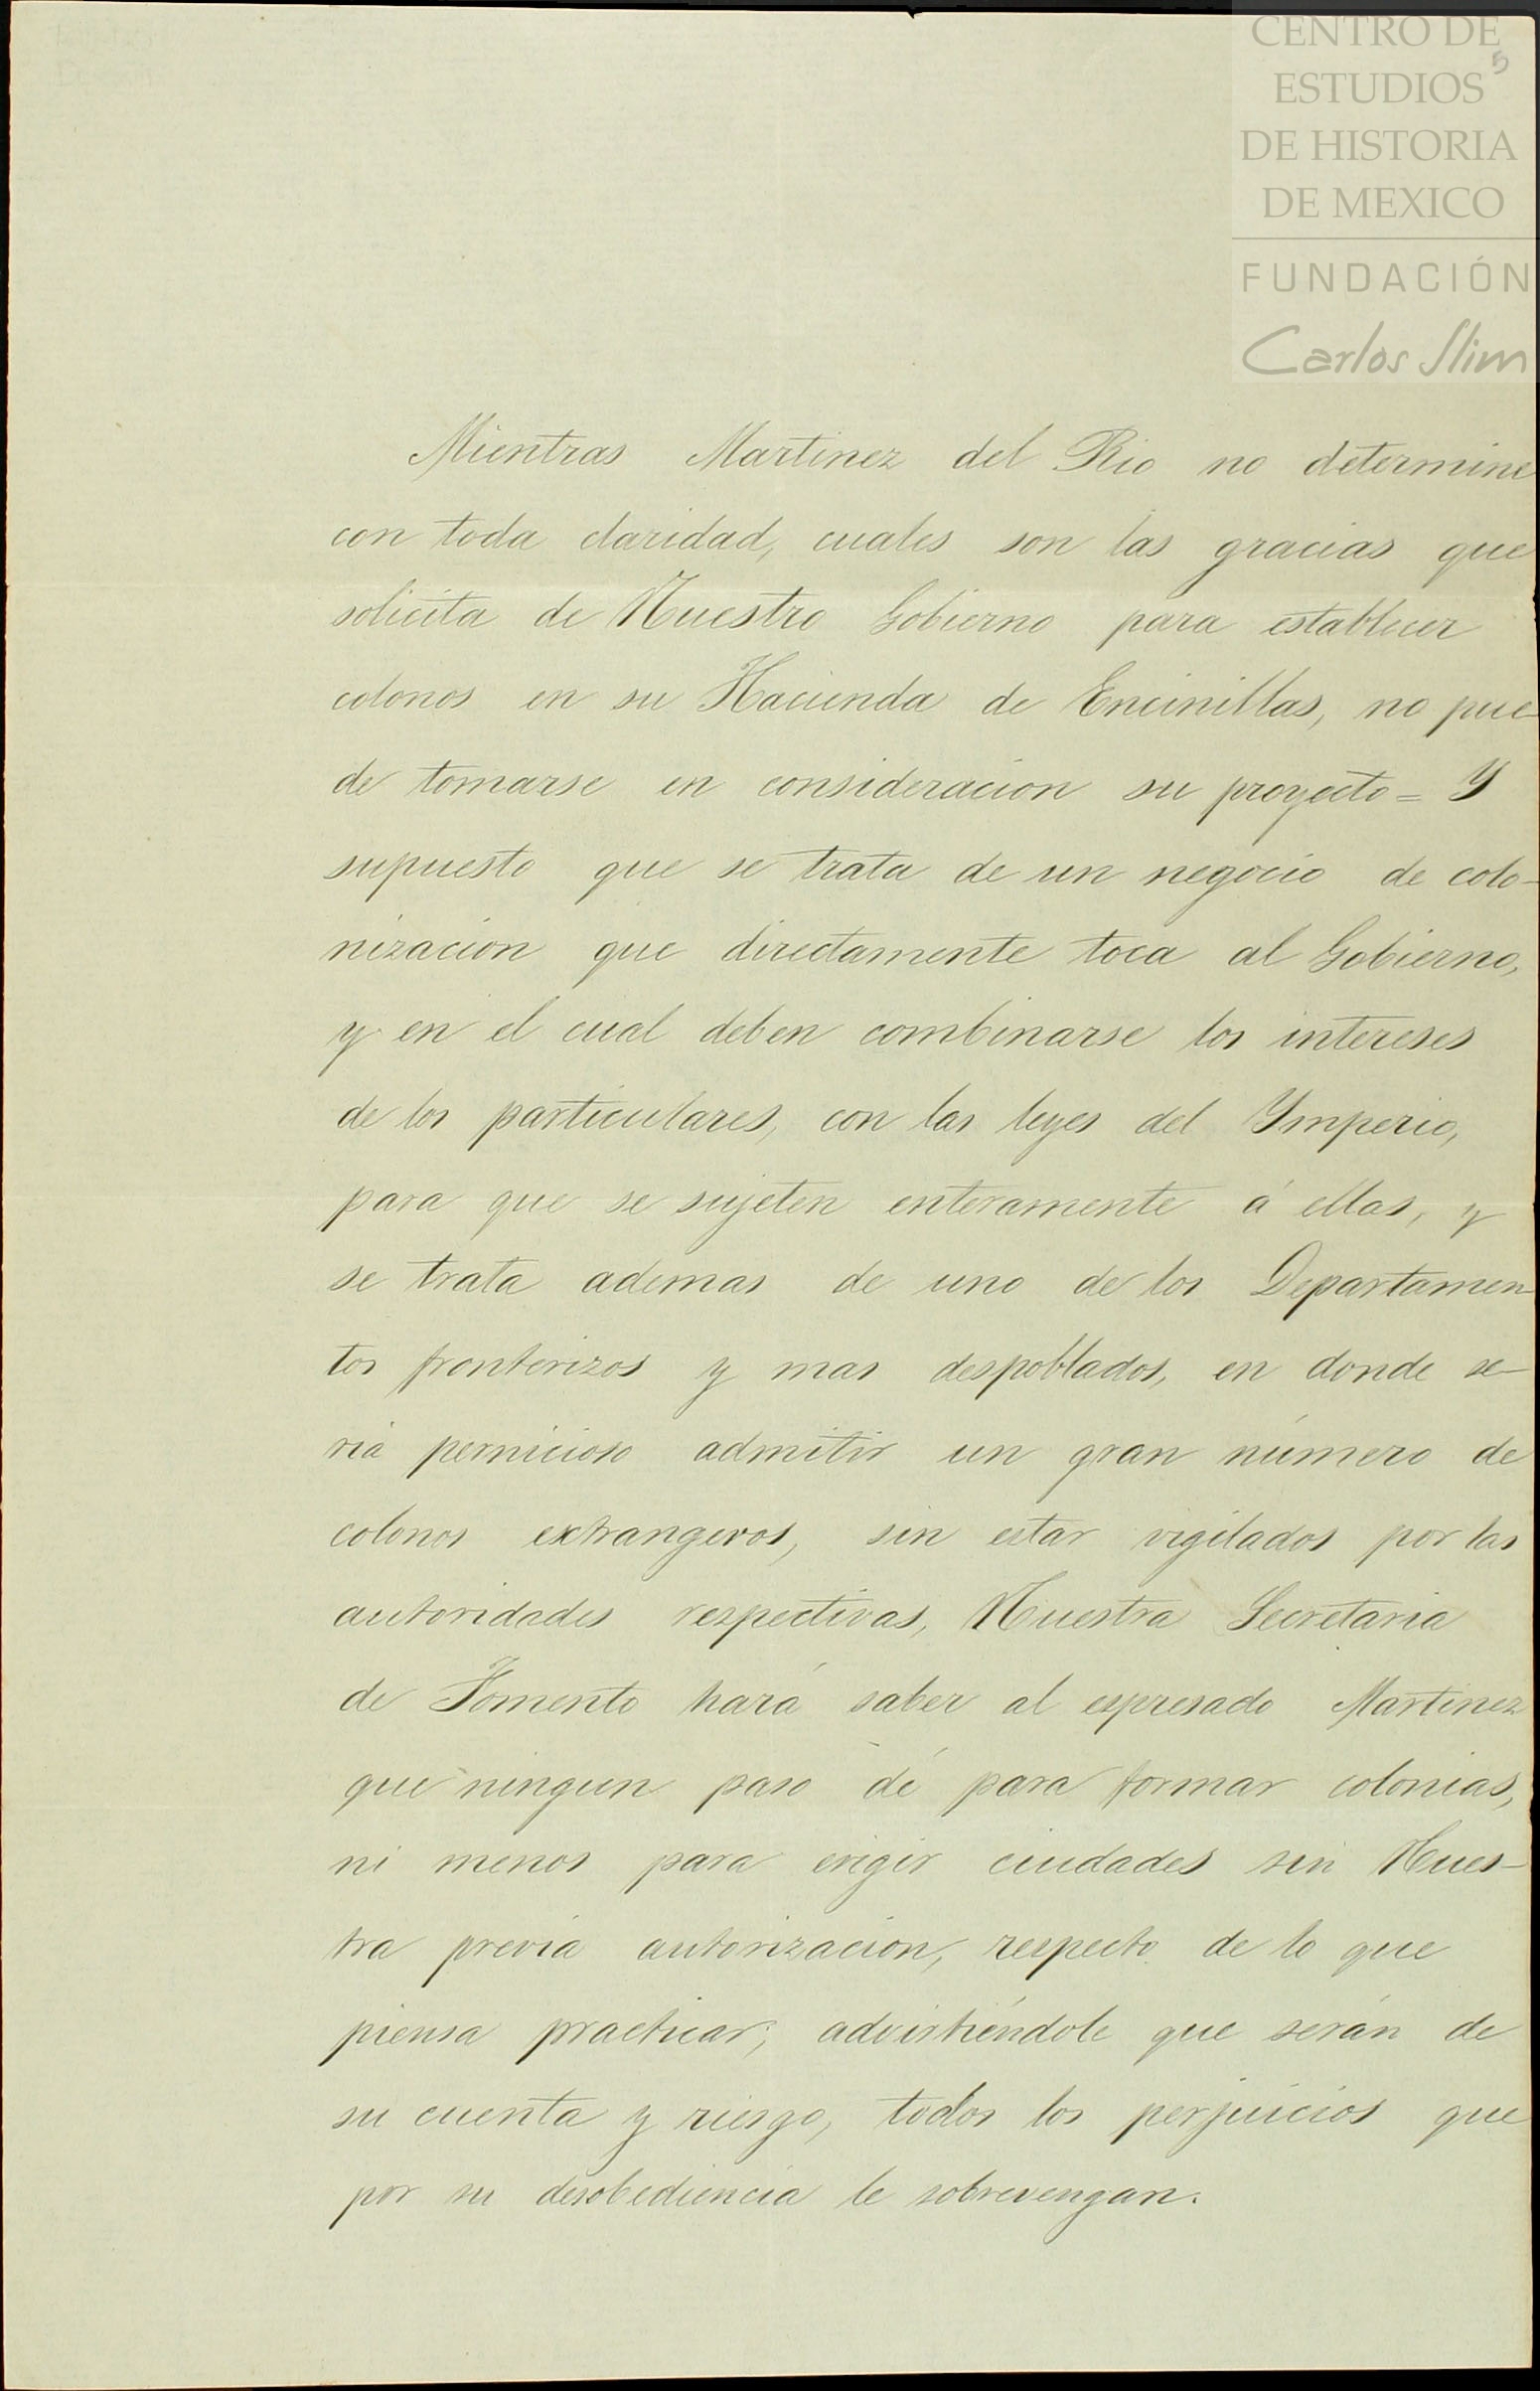 CENTRO DE
ESTUDIOS
5
DE HISTORIA
DE MEXICO
FUNDACIÓN
Carlos Slim
Mientras Martinez del Rio no determine
con toda claridad, cuales son las gracias que
solicita de Nuestro Gobierno para establecer
colonos en su Hacienda de Encinillas, no pue-
de tomarse en consideracion su proyecto = Y
supuesto que se trata de un negocio de colo-
nizacion que directamente toca al Gobierno,
y en el cual deben combinarse los intereses
de los particulares, con las leyes del Ymperio,
para que se sujeten enteramente á ellas, y
se trata ademas de uno de los Departamen-
tos fronterizos y mas despoblados, en donde se-
ria pernicioso admitir un gran número de
colonos extrangeros, sin estar vigilados por las
autoridades respectivas, Nuestra Secretaria
de Fomento hará saber al espresado Martinez
que ningun paso dé para formar colonias,
ni menos para erigir ciudades sin Nues-
tra previa autorizacion, respecto de lo que
piensa practicar; advirtiéndole que serán de
su cuenta y riesgo, todos los perjuicios que
por su desobediencia le sobrevengan.